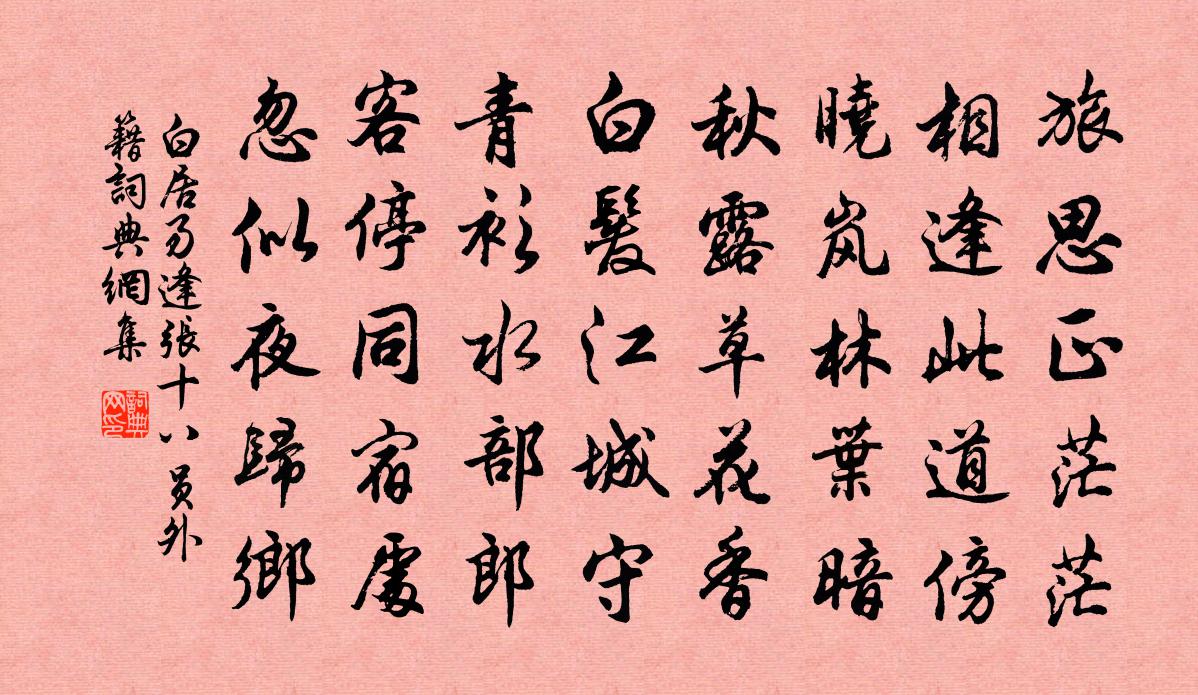 旅思正茫茫
相逢此道傍
曉岚林葉暗
秋露草花香
白髮江城守
青衫水部郎
客停同宿處
忽似夜歸鄉
白居易逢張十八員外
籍詞典網集
詞典网印